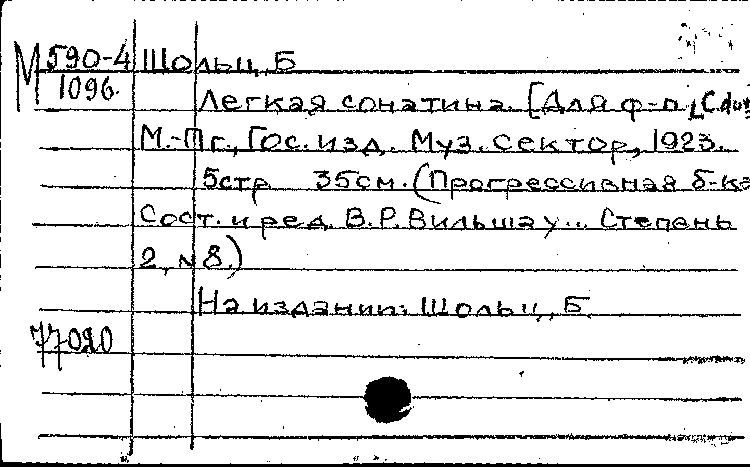 М 590-4 Шольц, Б
1096.
Легкая сонатина. [Для ф-п. C.dur
М.-Пг., Гос. изд. Муз. сектор, 1923.
5стр 35см. (Прогрессивная б-ка
Сост. и ред. В.Р. Вильшау... Степень
2, № 8.)
На издании: Шольц, Б.
77020